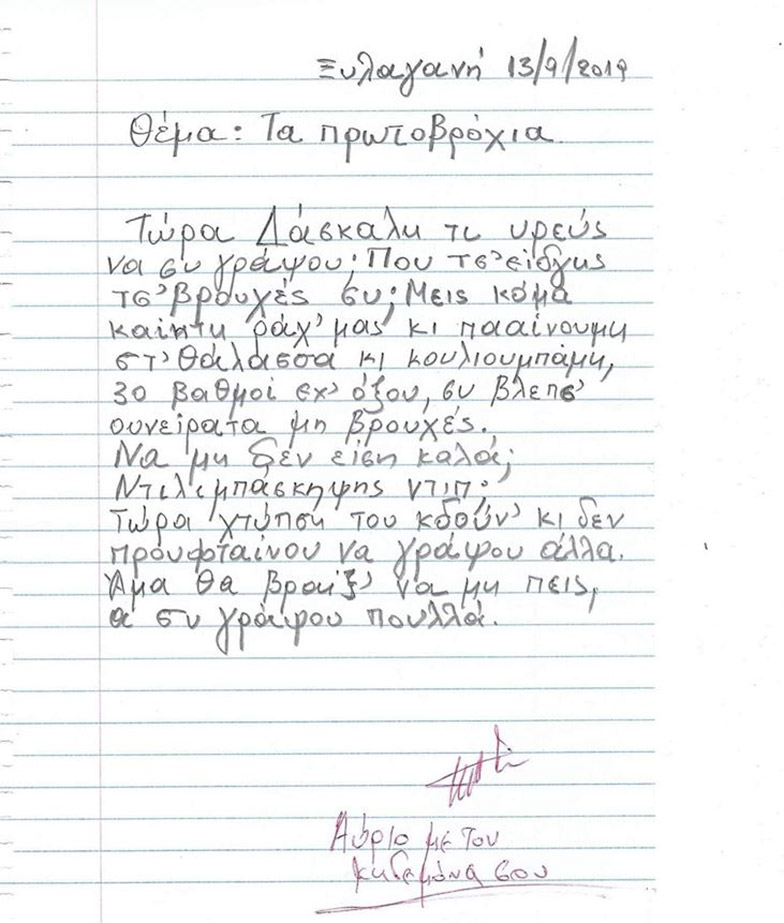 Ξυλαγανή 13/9/2019
Θέμα: Τα πρωτοβρόχια
Τώρα Δάσκαλη τι υρεύς
να συ γράψου; Που τσ'είδγης
τσ'βρουχές συ; Μεις κόμα
καίητη ράχ'μας κι πααίνουμη
στ'θάλασσα κι κουλιουμπάμη,
30 βαθμοί εχ' όξου, συ βλεπς'
ουνείρατα μη βρουχές.
Να μη δεν είση καλά;
Ντιλιμπάσκηψης ντιπ;
Τώρα χτύπση του κδούν' κι δεν
προυφταίνου να γράψου άλλα.
Άμα θα βραίξ' να μη πεις,
α συ γράψου πουλλά.
Αύριο με τον
κηδεμόνα σου